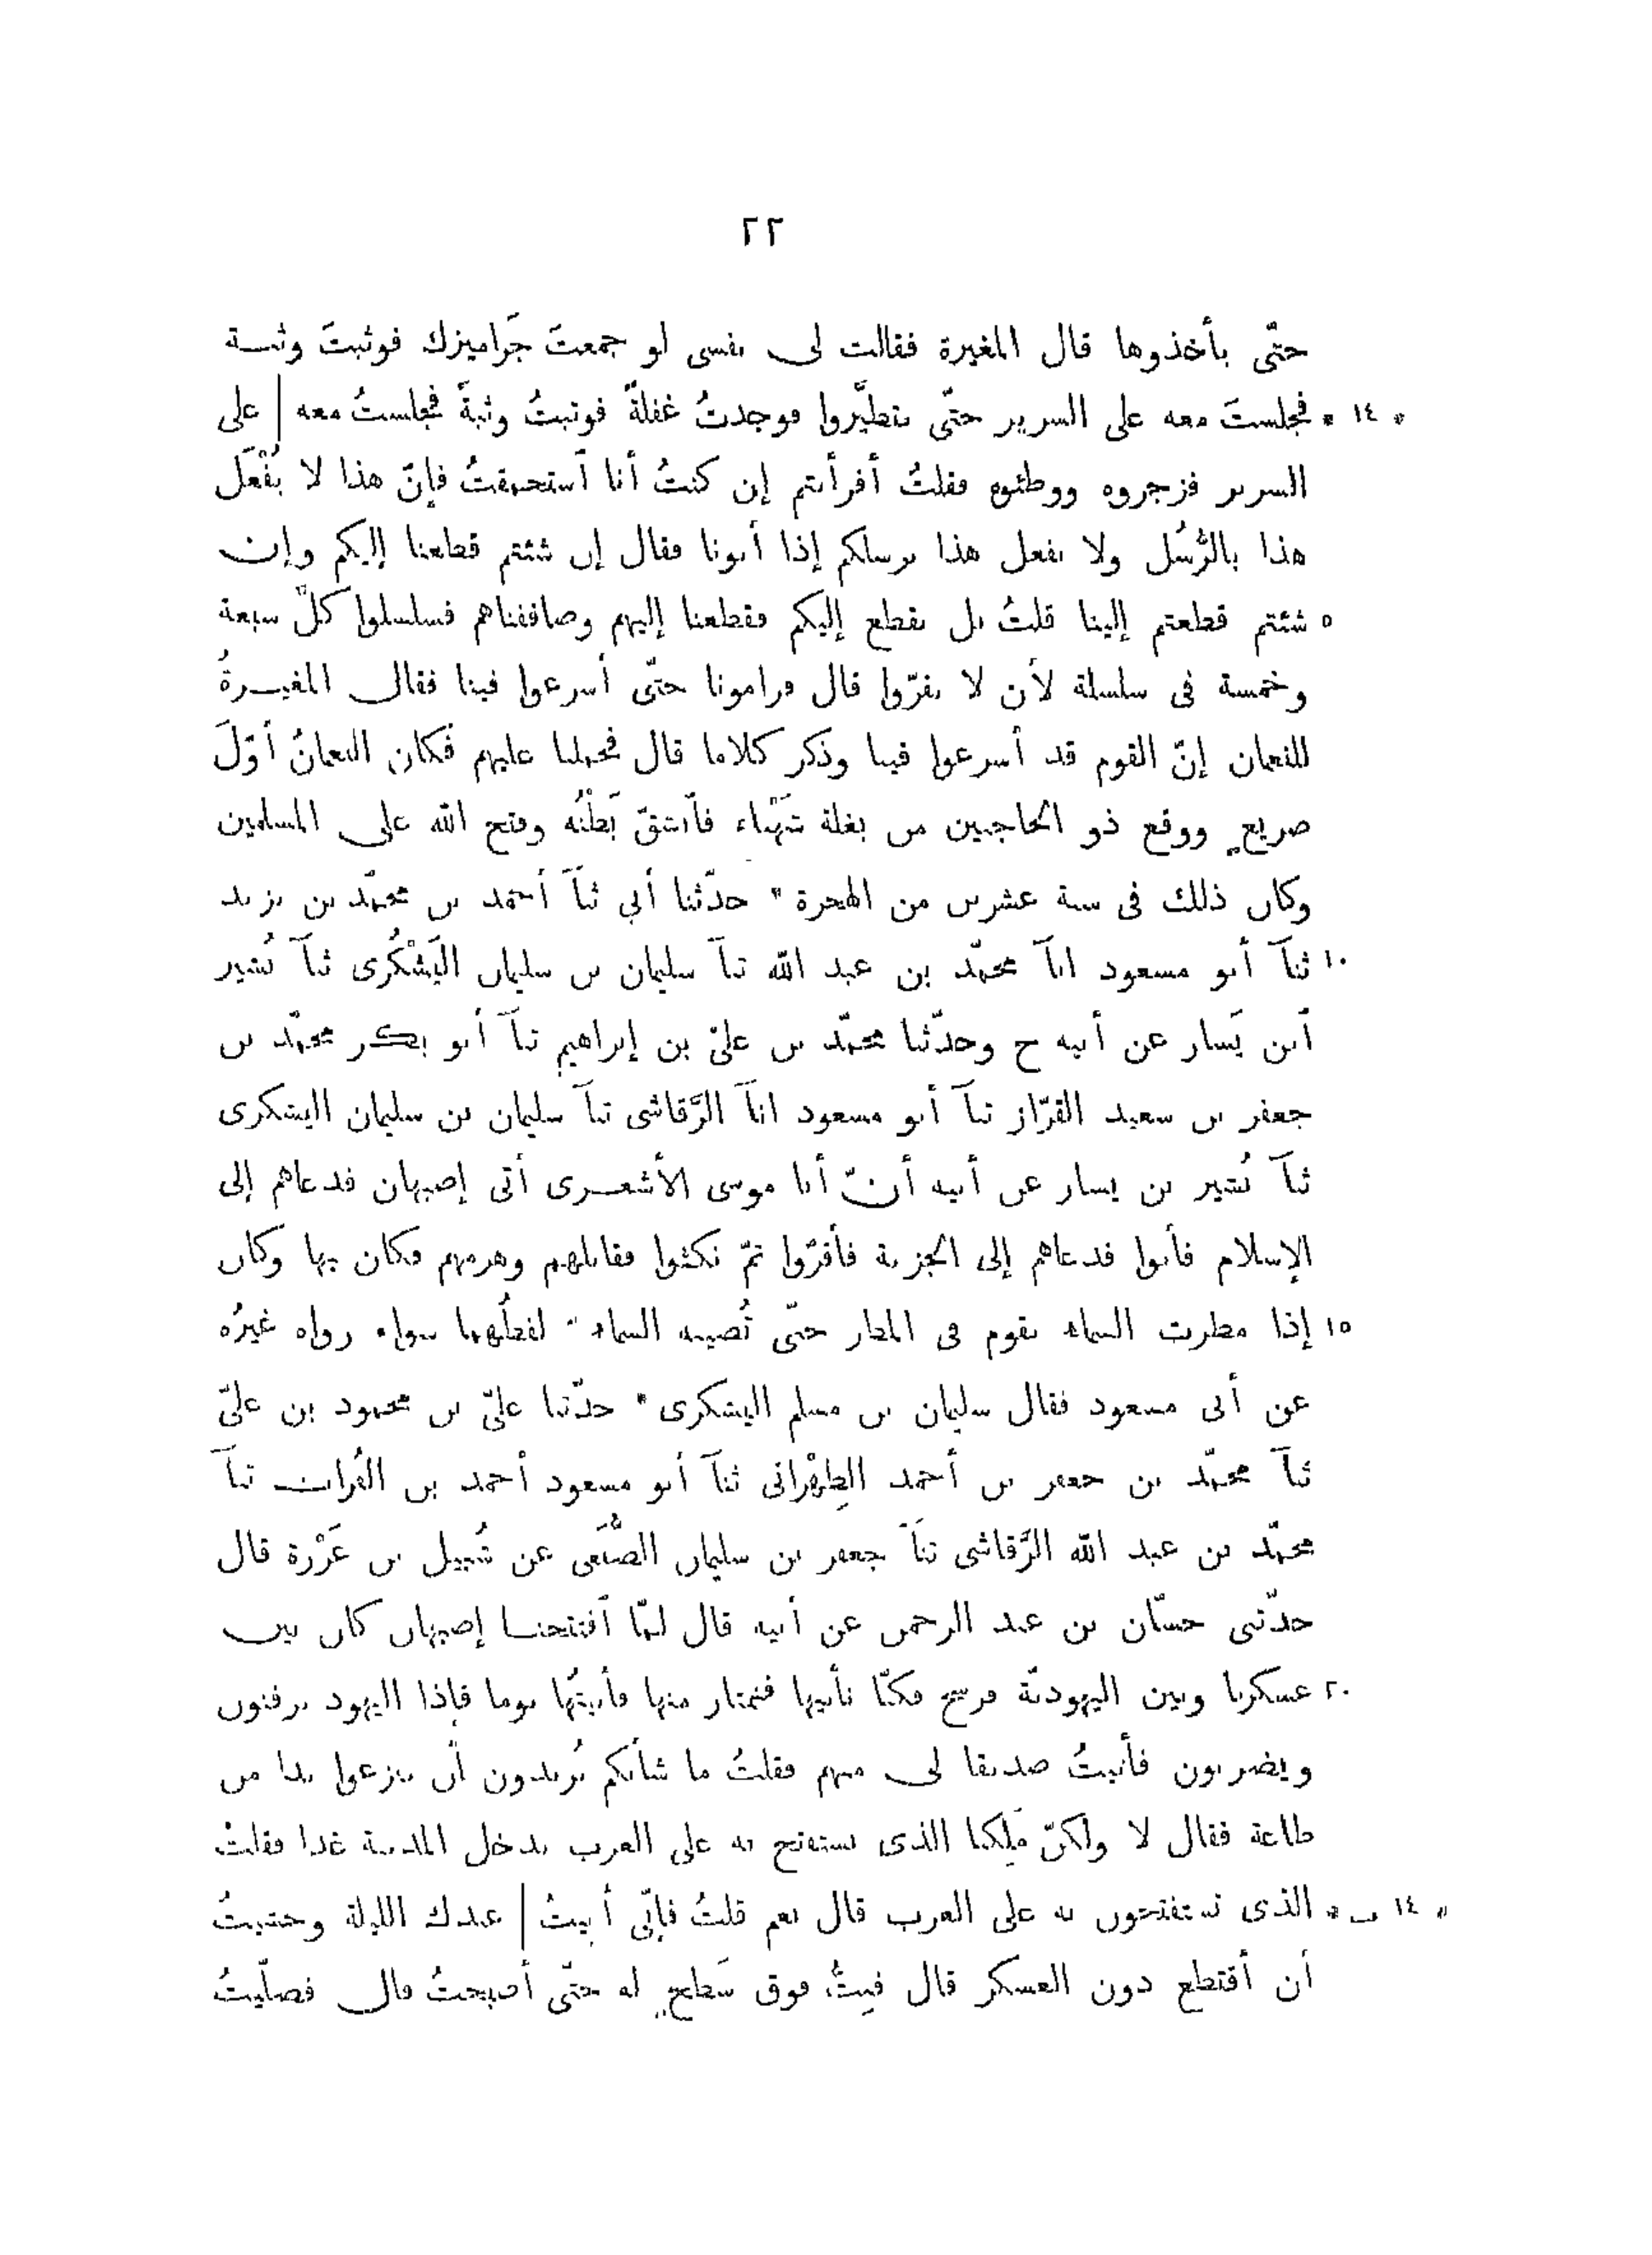 ٢٢
حتّى يأخذوها قال المغيرة فقالت لى نفسى لو جمعتَ جَراميزك فوثبتَ وثبـة
* ١٤ * فجلستَ معه على السرير حتّى يتطيَّروا فوجدتُ غفلةً فوثبتُ وثبةً فجلستُ معه | على
السرير فزجروه ووطئوه فقلتُ أفرأيتم إن كنتُ أنا آستحمقتُ فإنّ هذا لا يُفْعَل
هذا بالرُّسُل ولا نفعل هذا برسلكم إذا أتونا فقال إن شئتم قطعنا إليكم وإن
٥ شئتم قطعتم إلينا قلتُ بل نقطع إليكم فقطعنا إليهم وصاففناهم فسلسلوا كلَّ سبعة
وخمسة فى سلسلة لأن لا يفرّوا قال فرامونا حتّى أسرعوا فينا فقال المغيـرةُ
للنعمان إنّ القوم قد أسرعوا فينا وذكر كلاما قال فحملنا عليهم فكان النعمانُ أوّلَ
صريعٍ ووقع ذو الحاجبين من بغلة شَهْباء فآنشقّ بَطْنُه وفتح الله على المسلمين
وكان ذلك فى سنة عشرين من الهجرة * حدّثنا أبي ثنآ أحمد بن محمّد بن يزيد
١٠ ثنآ أبو مسعود انآ محمّد بن عبد الله ثنآ سليمان بن سليمان اليَشْكُرى ثنآ بُشير
آبن يَسار عن أبيه ح وحدّثنا محمّد بن علىّ بن إبراهيم ثنآ أبو بكر محمّد بن
جعفر بن سعيد القزّاز ثنآ أبو مسعود انآ الرَّقاشى ثنآ سليمان بن سليمان اليشكرى
ثنآ بُشير بن يسار عن أبيه أنّ أبا موسى الأشعـرى أتى إصبهان فدعاهم إلى
الإسلام فأبوا فدعاهم إلى الجزية فأقرّوا ثمّ نكثوا فقاتلهم وهزمهم فكان بها وكان
١٥ إذا مطرت السماء يقوم فى المطر حتّى تُصيبه السماء * لفظُهما سواء رواه غيرُه
عن أبى مسعود فقال سليمان بن مسلم اليشكرى * حدّثنا علىّ بن محمود بن علىّ
ثنآ محمّد بن جعفر بن أحمد الطِهْرانى ثنآ أبو مسعود أحمد بن الفُرات ثنآ
محمّد بن عبد الله الرَّقاشى ثنآ جعفر بن سليمان الضُّبَعى عن شُبيل بن عَزْرة قال
حدّثنى حسّان بن عبد الرحمن عن أبيه قال لمّا آفتتحنـا إصبهان كان بين
٢٠ عسكرنا وبين اليهوديّة فرسخ فكنّا نأتيها فنمتار منها فأتيتُها يوما فإذا اليهود يزفنون
ويضربون فأتيتُ صديقا لى منهم فقلتُ ما شأنكم تُريدون أن تنزعوا يدا من
طاعة فقال لا ولكنّ مَلِكنا الذى نستفتح به على العرب يدخل المدينة غدا فقلتُ
* ١٤ ب * الذى تستفتحون به على العرب قال نعم قلتُ فإنّى أبيتُ | عندك الليلة وخشيتُ
أن أقتطع دون العسكر قال فبِتُّ فوق سَطحٍ له حتّى أصبحتُ قال فصلّيتُ